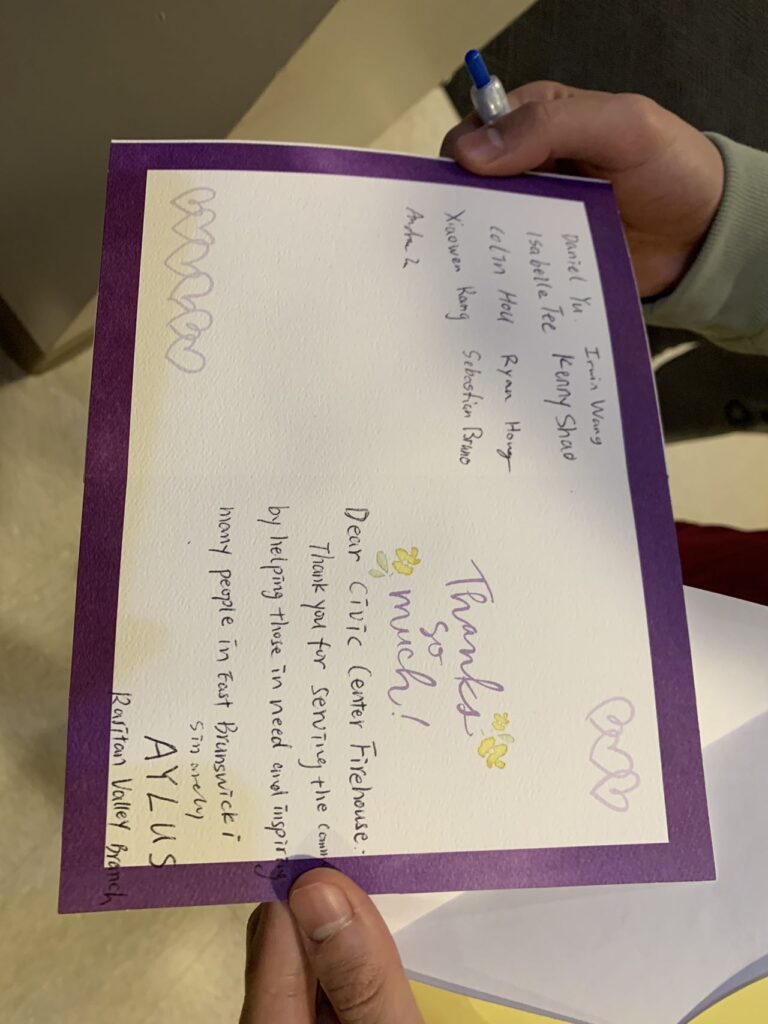 Daniel Yu. Irwin Wang
Isabelle Tee Kenny Shao
Colin Hou Ryan Hong
Xiaowen Kang Sebastian Bruno
Thanks
so
much!
Dear Civic Center Firehouse:
Thank you for serving the
by helping those in need and inspiring
many people in East Brunswick!
sinarely
AYLUS
Raritan Valley Branch